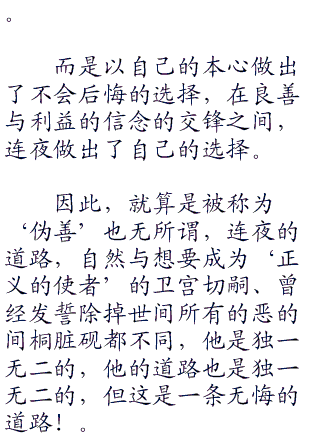 。
而是以自己的本心做出
了不会后悔的选择，在良善
与利益的信念的交锋之间，
连夜做出了自己的选择。
因此，就算是被称为
‘伪善’也无所谓，连夜的
道路，自然与想要成为‘正
义的使者’的卫宫切嗣、曾
经发誓除掉世间所有的恶的
间桐脏砚都不同，他是独一
无二的，他的道路也是独一
无二的，但这是一条无悔的
道路！。